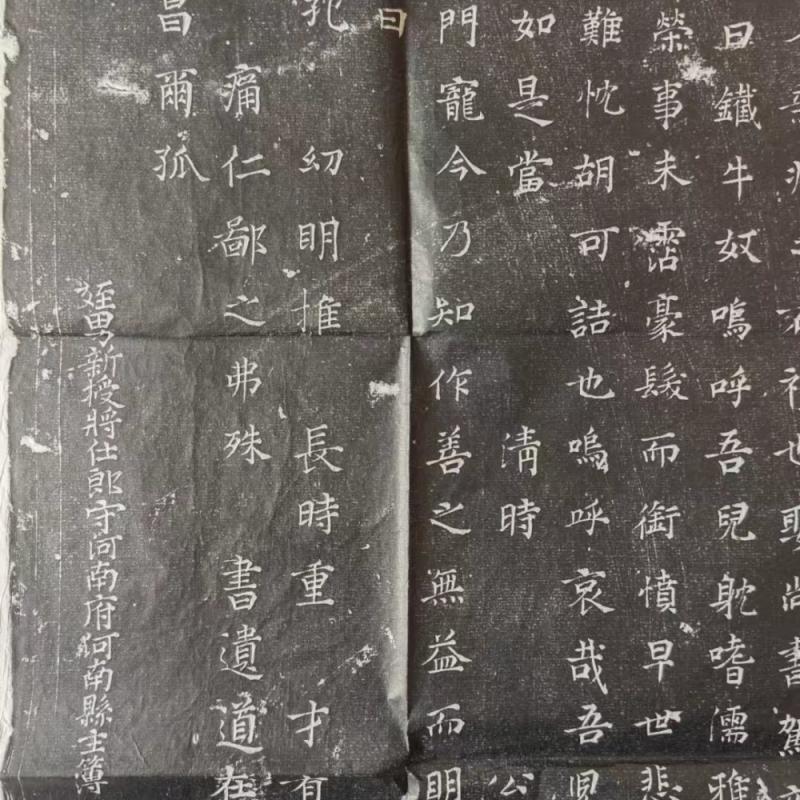 不祥也娶尚書駕
曰鐵牛奴嗚呼吾兒耽嗜濡雅
榮事未霑豪髮而銜憤早世悲
難忱胡可詰也嗚呼哀哉吾兒
如是當 清時 公
門寵今乃知作善之無益而明
曰
幼明推 長時重 才有
痛仁鄙之弗殊 書遺道在
昌爾孤
姪男新授將仕郎守河南府河南縣主簿